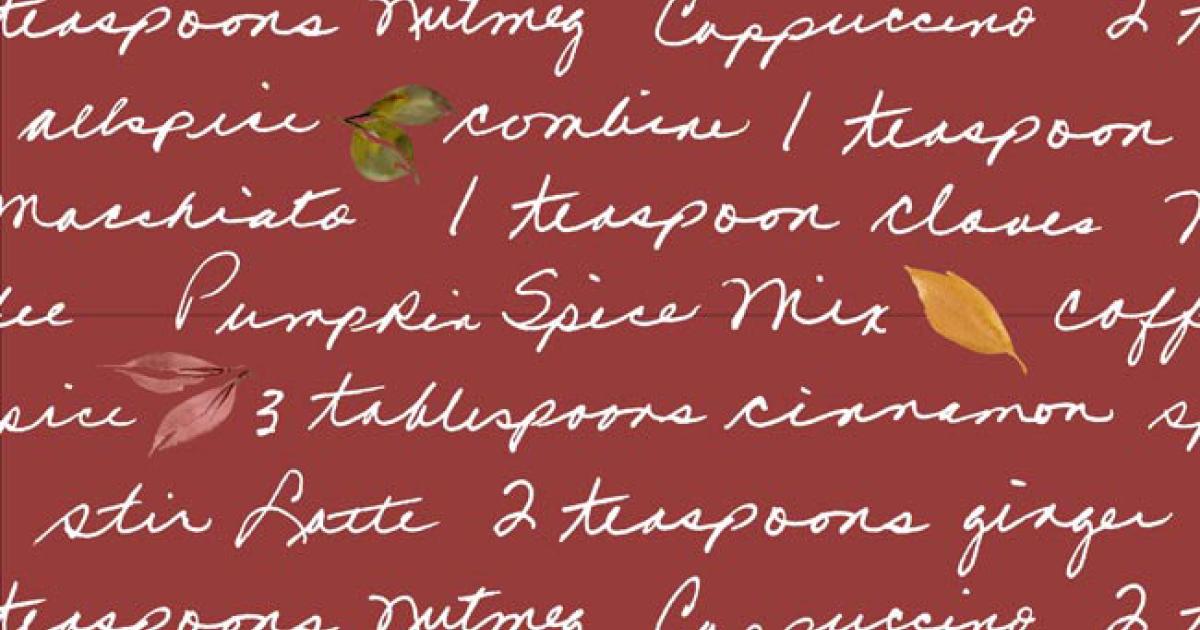 teaspoons Nutmeg Cappuccino 2
allspice combine 1 teaspoon
Macchiato 1 teaspoon cloves
ee Pumpkin Spice Mix coff
spice 3 tablespoons cinnamon sp
stir Latte 2 teaspoons ginger
teaspoons Nutmeg Cappuccino 2